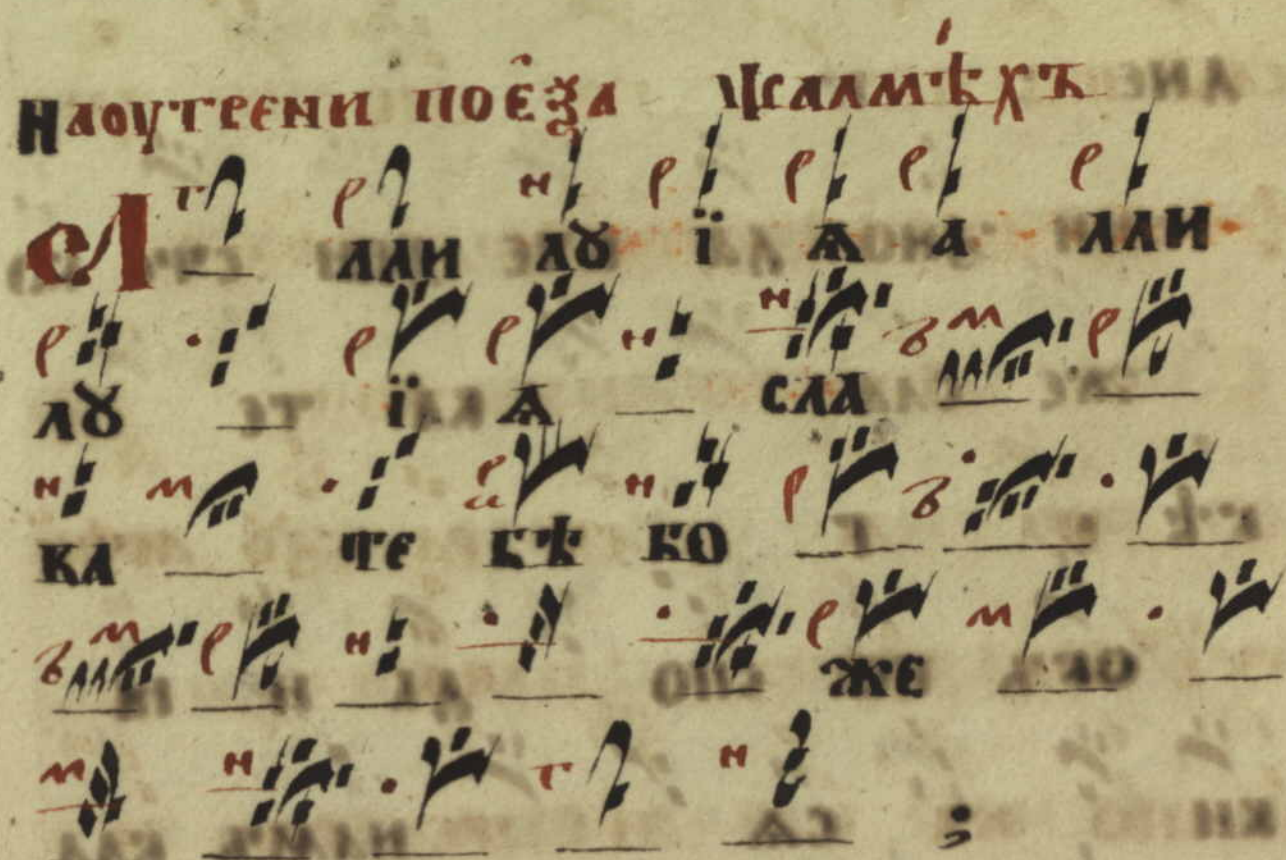 Наоутрени поє̑ѯа ѱалмѣхъ
А лли лꙋ ї ѧ а лли
лꙋ ї ѧ сла
ва те бѣ бо
же
;